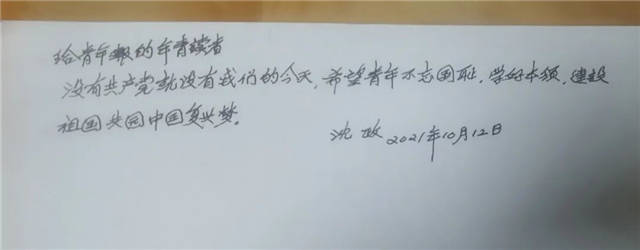 给青年报的年青读者
没有共产党就没有我们的今天,希望青年不忘国耻,学好本领,建设
祖国共圆中国复兴梦。
沈政 2021年10月12日